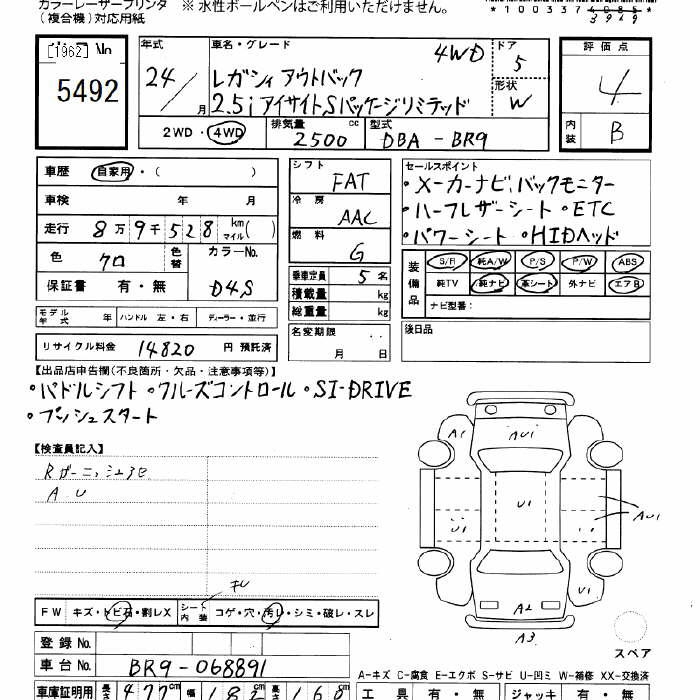 カラーレーザープリンタ ※ 水性ボールペンはご利用いただけません。
（複合機）対応用紙
[1962] No
5492
年式 24 月
車名・グレード 4WD
レガシィ アウトバック
2.5i アイサイトSパッケージリミテッド
ドア 5
形状 W
評価点 4
内装 B
2WD・4WD 排気量 2500 cc 型式 DBA-BR9
車歴 自家用・（ ）
車検 年 月
走行 8万9千528 km マイル( )
色 クロ 色替 カラーNo.
保証書 有・無 D4S
シフト FAT
冷房 AAC
燃料 G
乗車定員 5 名
積載量 kg
総重量 kg
セールスポイント
・メーカーナビ バックモニター
・ハーフレザーシート ・ETC
・パワーシート ・HIDヘッド
装備品 S/R 純A/W P/S P/W ABS
純TV 純ナビ 革シート 外ナビ エアB
ナビ型番：
モデル年式 年 ハンドル 左・右 ディーラー・並行
名変期限 月 日
後日品
リサイクル料金 14820 円 預託済
【出品店申告欄(不良箇所・欠品・注意事項等)】
・パドルシフト ・クルーズコントロール ・SI-DRIVE
・プッシュスタート
【検査員記入】
A U
A1
AU1
U1
U1
AU1
U1
A2
A3
スペア
FW キズ・トビ石・割レX シート内装 コゲ・穴・汚レ・シミ・破レ・スレ
登録 No.
車台 No. BR9-068891
A-キズ C-腐食 E-エクボ S-サビ U-凹ミ W-補修 XX-交換済
車庫証明用 長さ 477 cm 幅 182 cm 高さ 168 cm
工具 有・無 ジャッキ 有・無